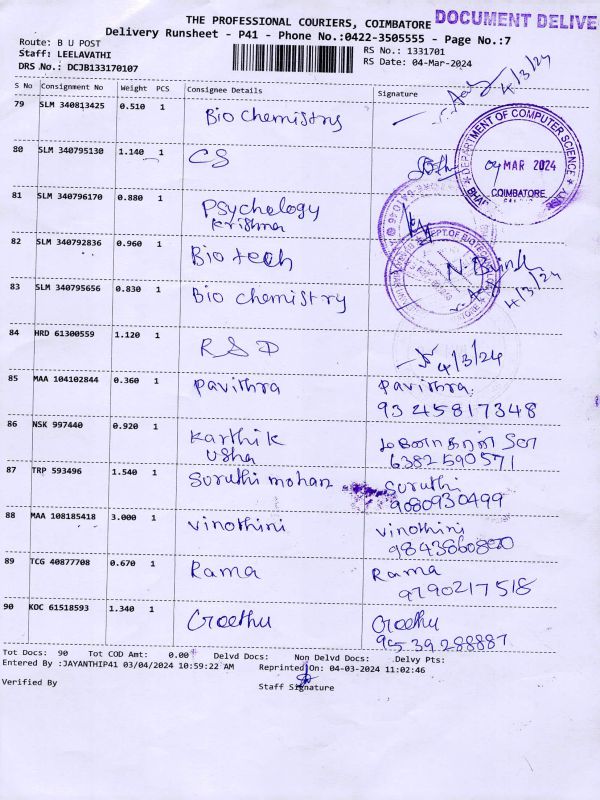 THE PROFESSIONAL COURIERS, COIMBATORE DOCUMENT DELIVE
Delivery Runsheet - P41 - Phone No.:0422-3505555 - Page No.:7
Route: B U POST
Staff: LEELAVATHI
DRS No.: DCJB133170107
RS No.: 1331701
RS Date: 04-Mar-2024
S No Consignment No Weight PCS Consignee Details Signature
79 SLM 340813425 0.510 1 Bio chemistry 4/3/24
80 SLM 340795130 1.140 1 CS
DEPARTMENT OF COMPUTER SCIENCE
04 MAR 2024
COIMBATORE
81 SLM 340796170 0.880 1 Psychology
Krishna
82 SLM 340792836 0.960 1 Bio tech
83 SLM 340795656 0.830 1 Bio chemistry 4/3/24
84 HRD 61300559 1.120 1 R S D 4/3/24
85 MAA 104102844 0.360 1 Pavithra Pavithra.
9345817348
86 NSK 997440 0.920 1 Karthik
Usha 6382590571
87 TRP 593496 1.540 1 Suruthi mohan Suruthi
9080930499
88 MAA 108185418 3.000 1 vinothini vinothini
89 TCG 40877708 0.670 1 Rama Rama
9790217518
90 KOC 61518593 1.340 1 Greethu Greethu
9539288887
Tot Docs: 90 Tot COD Amt: 0.00 Delvd Docs: Non Delvd Docs: Delvy Pts:
Entered By :JAYANTHIP41 03/04/2024 10:59:22 AM Reprinted On: 04-03-2024 11:02:46
Verified By Staff Signature